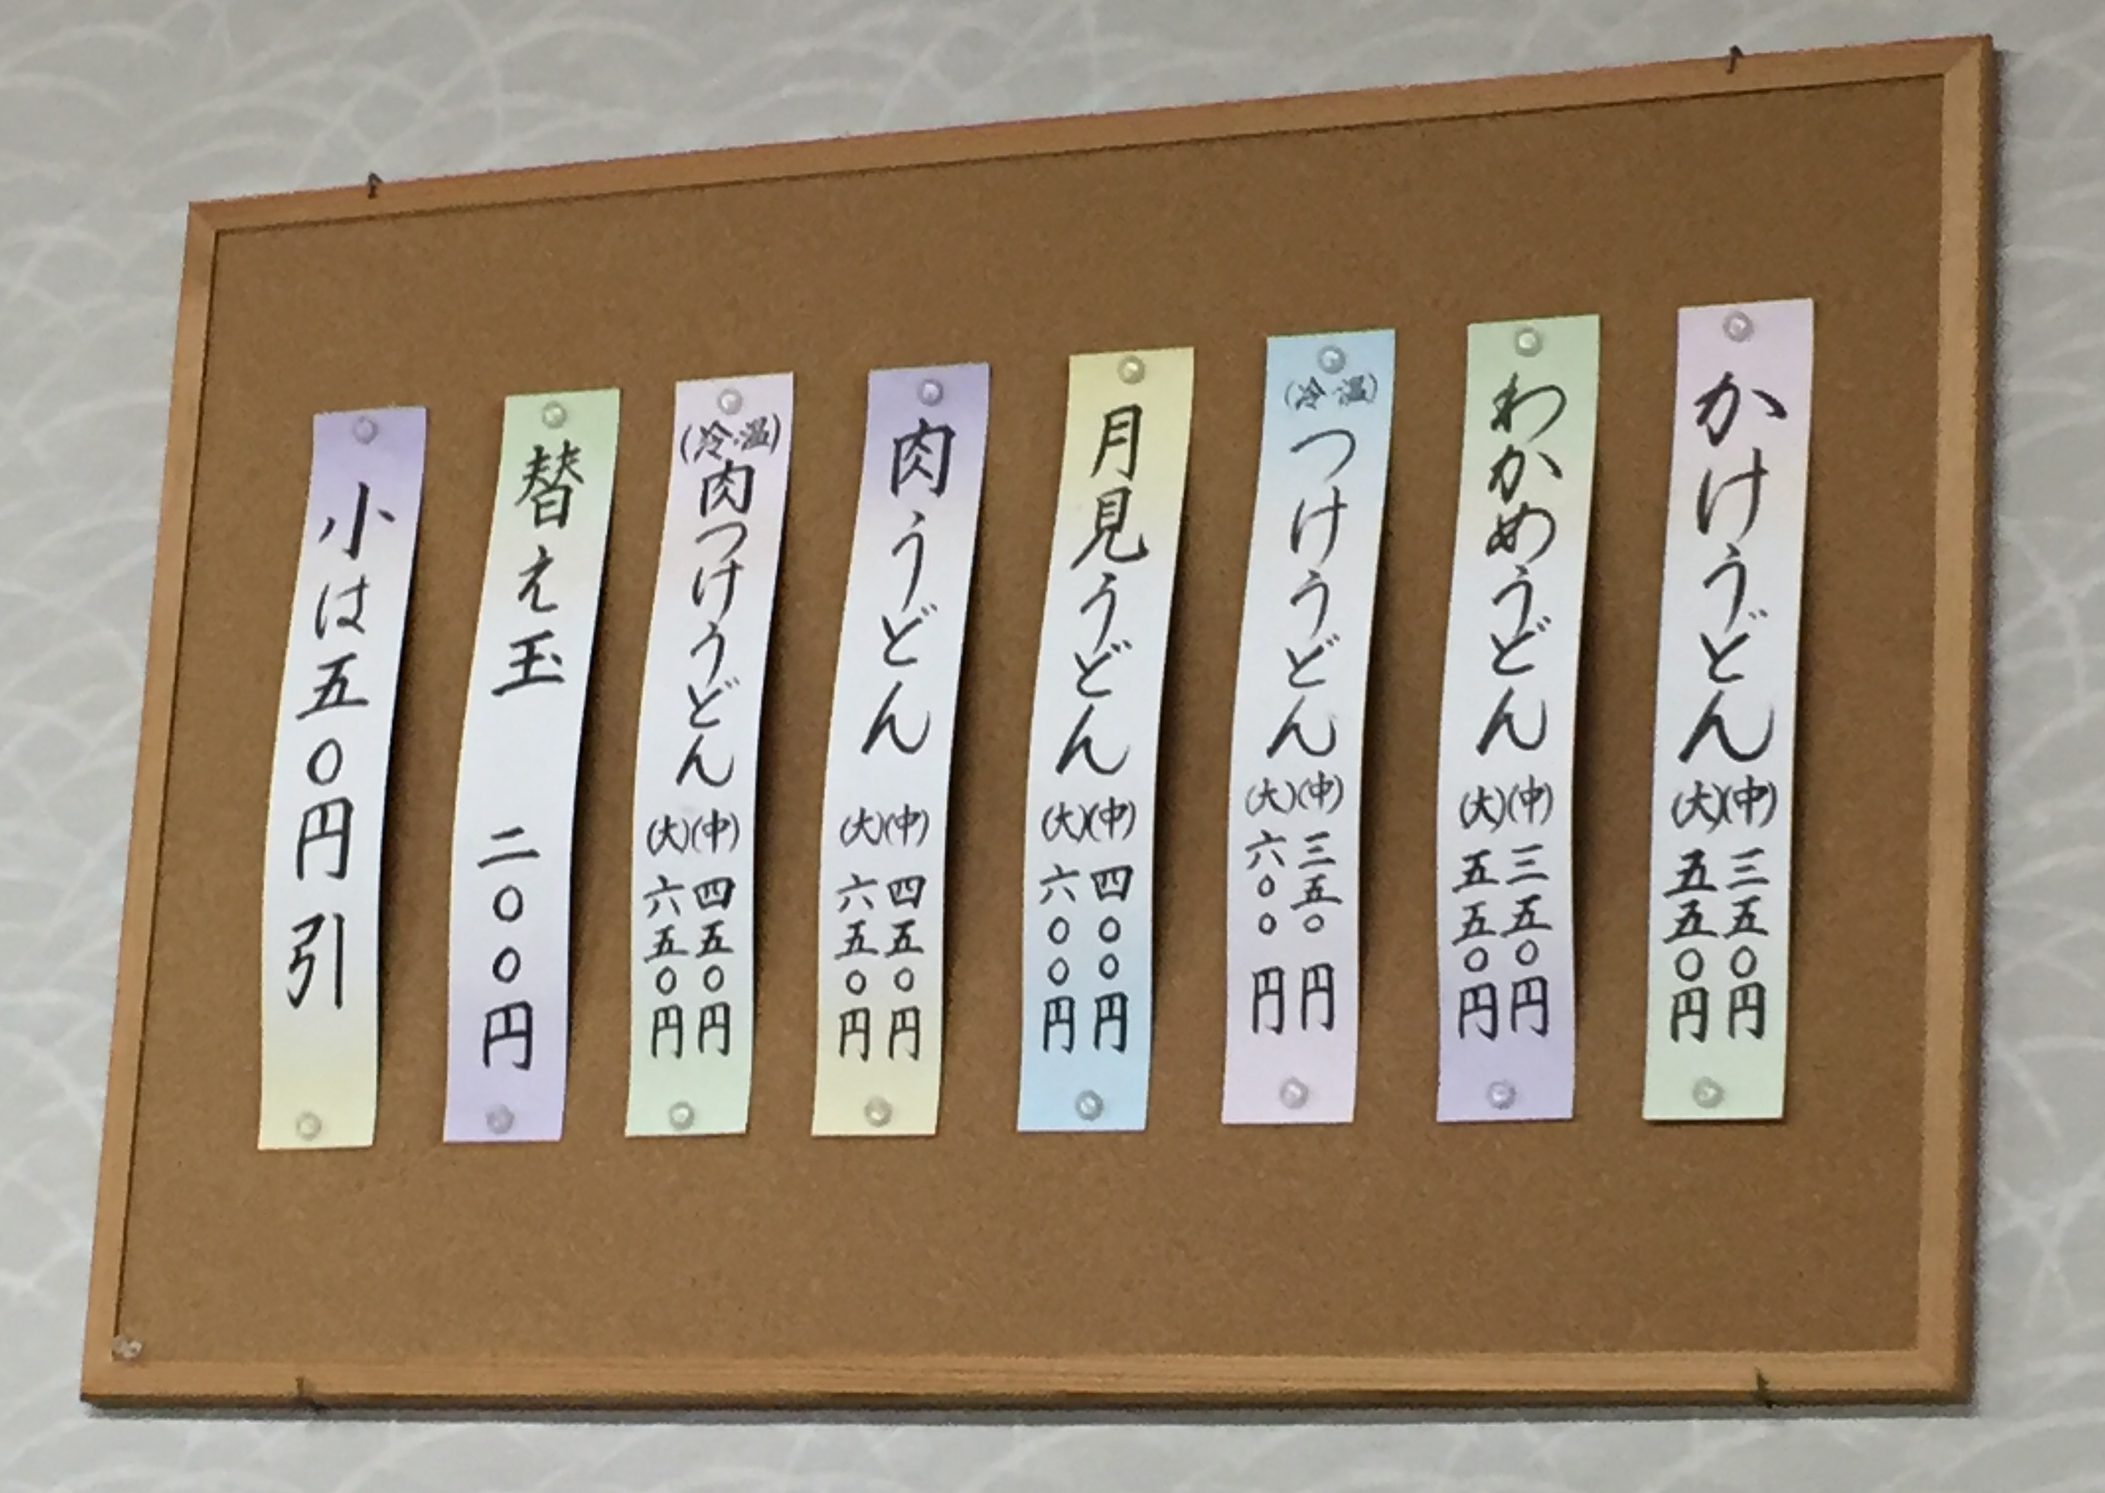 かけうどん
(中)三五〇円
(大)五五〇円
わかめうどん
(中)三五〇円
(大)五五〇円
(冷・温)
つけうどん
(中)三五〇円
(大)六〇〇円
月見うどん
(中)四〇〇円
(大)六〇〇円
肉うどん
(中)四五〇円
(大)六五〇円
(冷・温)
肉つけうどん
(中)四五〇円
(大)六五〇円
替え玉 二〇〇円
小は五〇円引